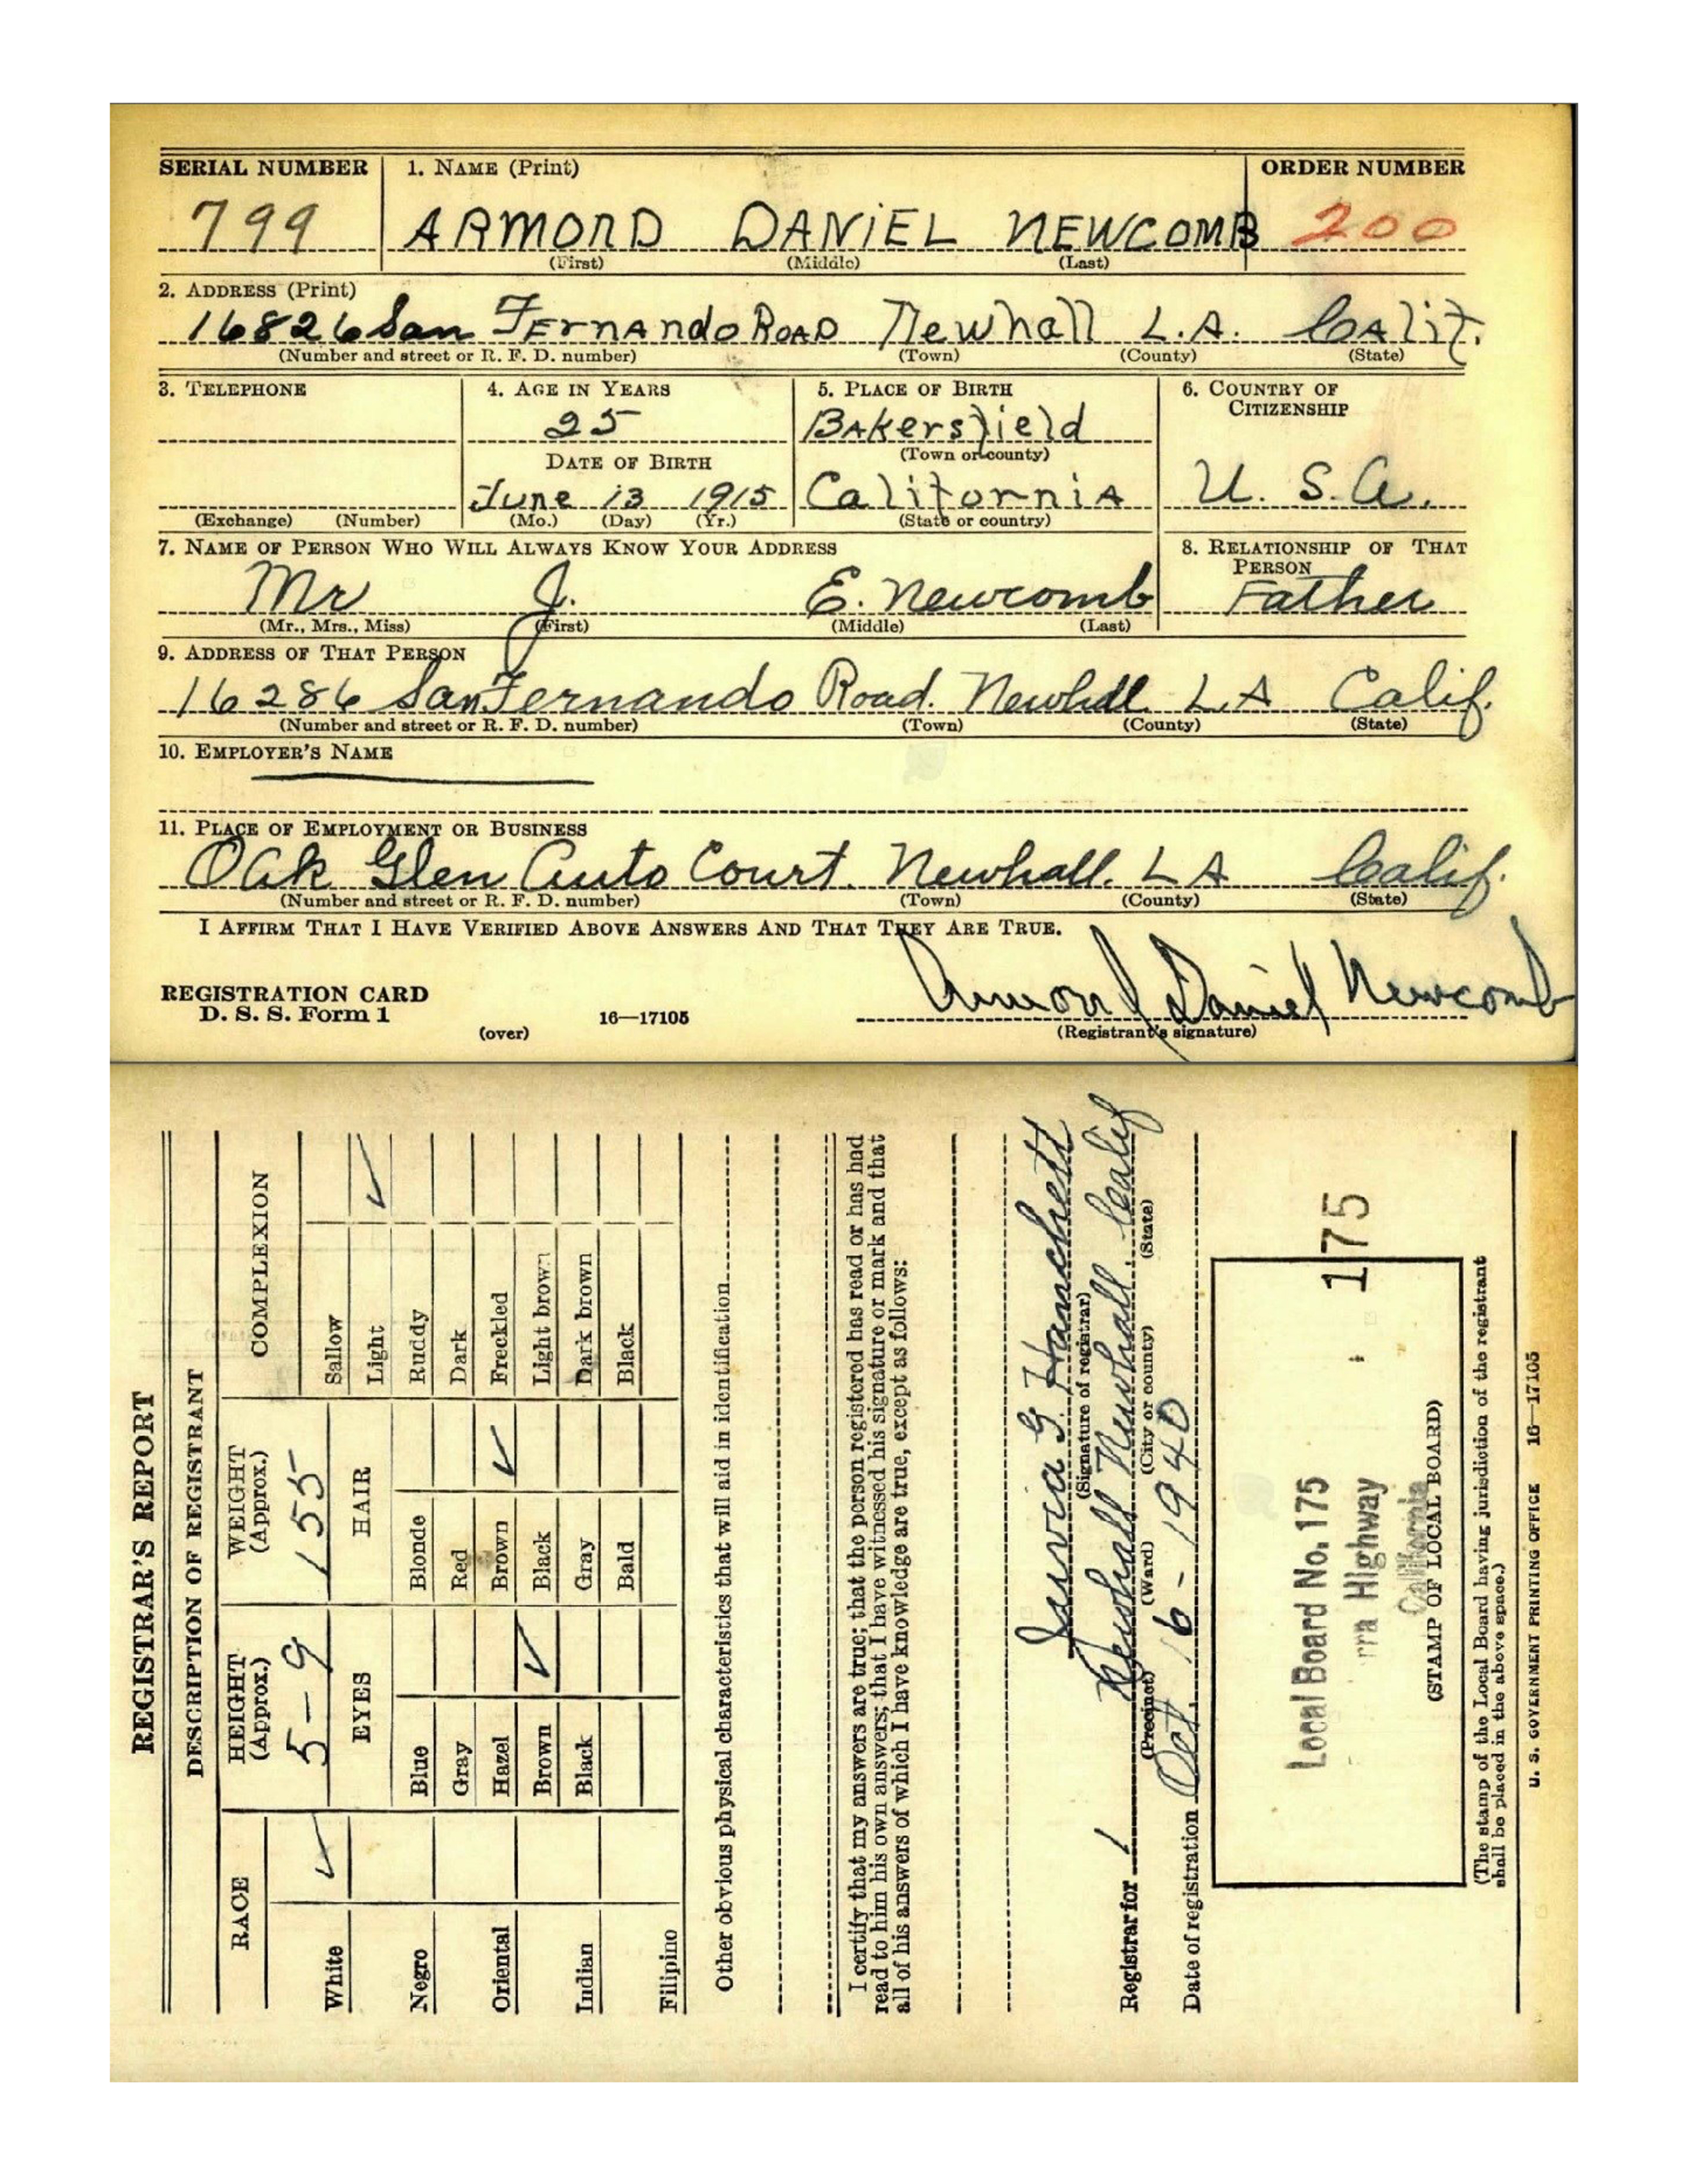 SERIAL NUMBER 1. NAME (Print) ORDER NUMBER
799 ARMOND DANIEL NEWCOMB 200
(First) (Middle) (Last)
2. ADDRESS (Print)
16826 San FErnAndo ROAD Newhall L.A. CAlif.
(Number and street or R. F. D. number) (Town) (County) (State)
3. TELEPHONE 4. AGE IN YEARS 5. PLACE OF BIRTH 6. COUNTRY OF CITIZENSHIP
25 BAkersfield
DATE OF BIRTH (Town or county)
June 13 1915 CaliforniA U. S. A.
(Exchange) (Number) (Mo.) (Day) (Yr.) (State or country)
7. NAME OF PERSON WHO WILL ALWAYS KNOW YOUR ADDRESS 8. RELATIONSHIP OF THAT PERSON
Mr J. E. Newcomb Father
(Mr., Mrs., Miss) (First) (Middle) (Last)
9. ADDRESS OF THAT PERSON
16286 San Fernando Road. Newhall L.A Calif.
(Number and street or R. F. D. number) (Town) (County) (State)
10. EMPLOYER'S NAME
11. PLACE OF EMPLOYMENT OR BUSINESS
Oak Glen Auto Court. Newhall. L A Calif.
(Number and street or R. F. D. number) (Town) (County) (State)
I AFFIRM THAT I HAVE VERIFIED ABOVE ANSWERS AND THAT THEY ARE TRUE.
Armond Daniel Newcomb
REGISTRATION CARD
D. S. S. Form 1 (over) 16—17105 (Registrant's signature)
REGISTRAR'S REPORT
DESCRIPTION OF REGISTRANT
RACE HEIGHT (Approx.) WEIGHT (Approx.) COMPLEXION
5-9 155
EYES HAIR
White ✓ Sallow
Light ✓
Negro Blue Blonde Ruddy
Gray Red Dark
Oriental Hazel Brown ✓ Freckled
Brown ✓ Black Light brown
Indian Black Gray Dark brown
Filipino Bald Black
Other obvious physical characteristics that will aid in identification
I certify that my answers are true; that the person registered has read or has had
read to him his own answers; that I have witnessed his signature or mark and that
all of his answers of which I have knowledge are true, except as follows:
G.
(Signature of registrar)
Registrar for 1 Newhall Newhall Calif
(Precinct) (Ward) (City or county) (State)
Date of registration Oct. 16 - 1940
175
Local Board No. 175
rra Highway
California
(STAMP OF LOCAL BOARD)
(The stamp of the Local Board having jurisdiction of the registrant
shall be placed in the above space.)
U. S. GOVERNMENT PRINTING OFFICE 16—17105